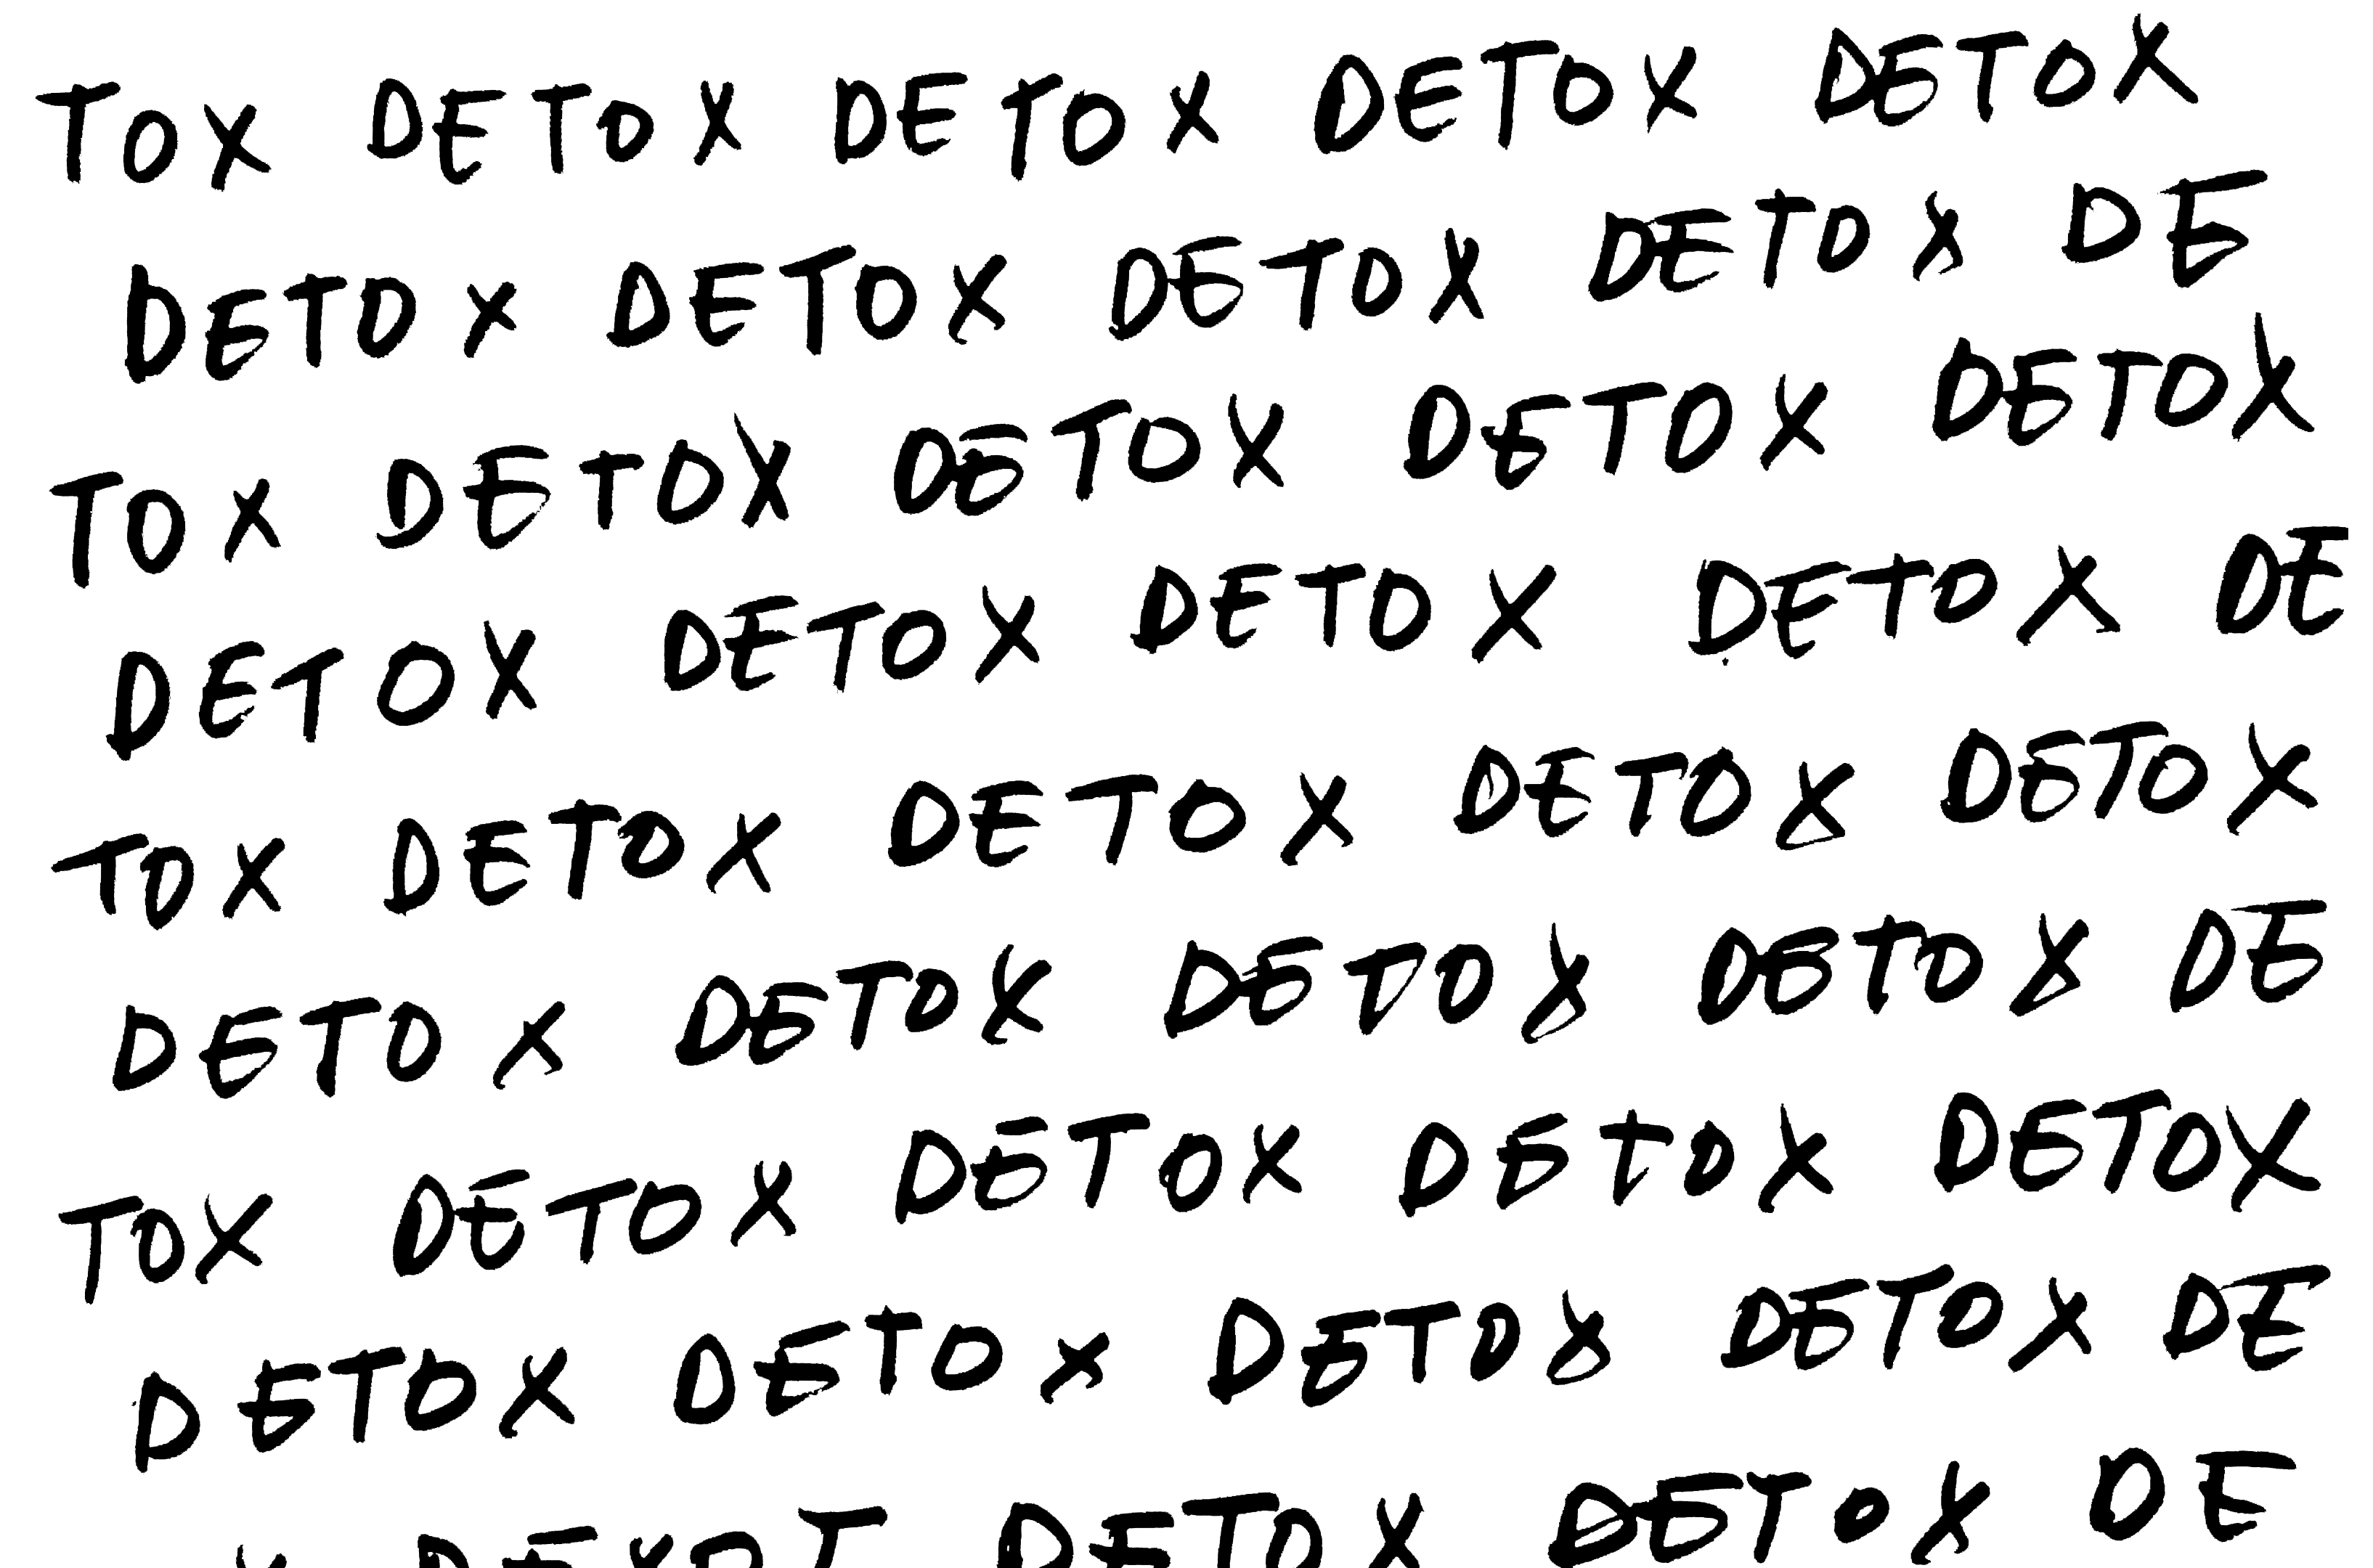 TOX DETOX DETOX DETOX DETOX
DETOX DETOX DETOX DETOX DE
TOX DETOX DETOX DETOX DETOX
DETOX DETOX DETOX DETOX DE
TOX DETOX DETOX DETOX DETOX
DETOX DETOX DETOX DETOX DE
TOX DETOX DETOX DETOX DETOX
DETOX DETOX DETOX DETOX DE
DETOX DETOX DE